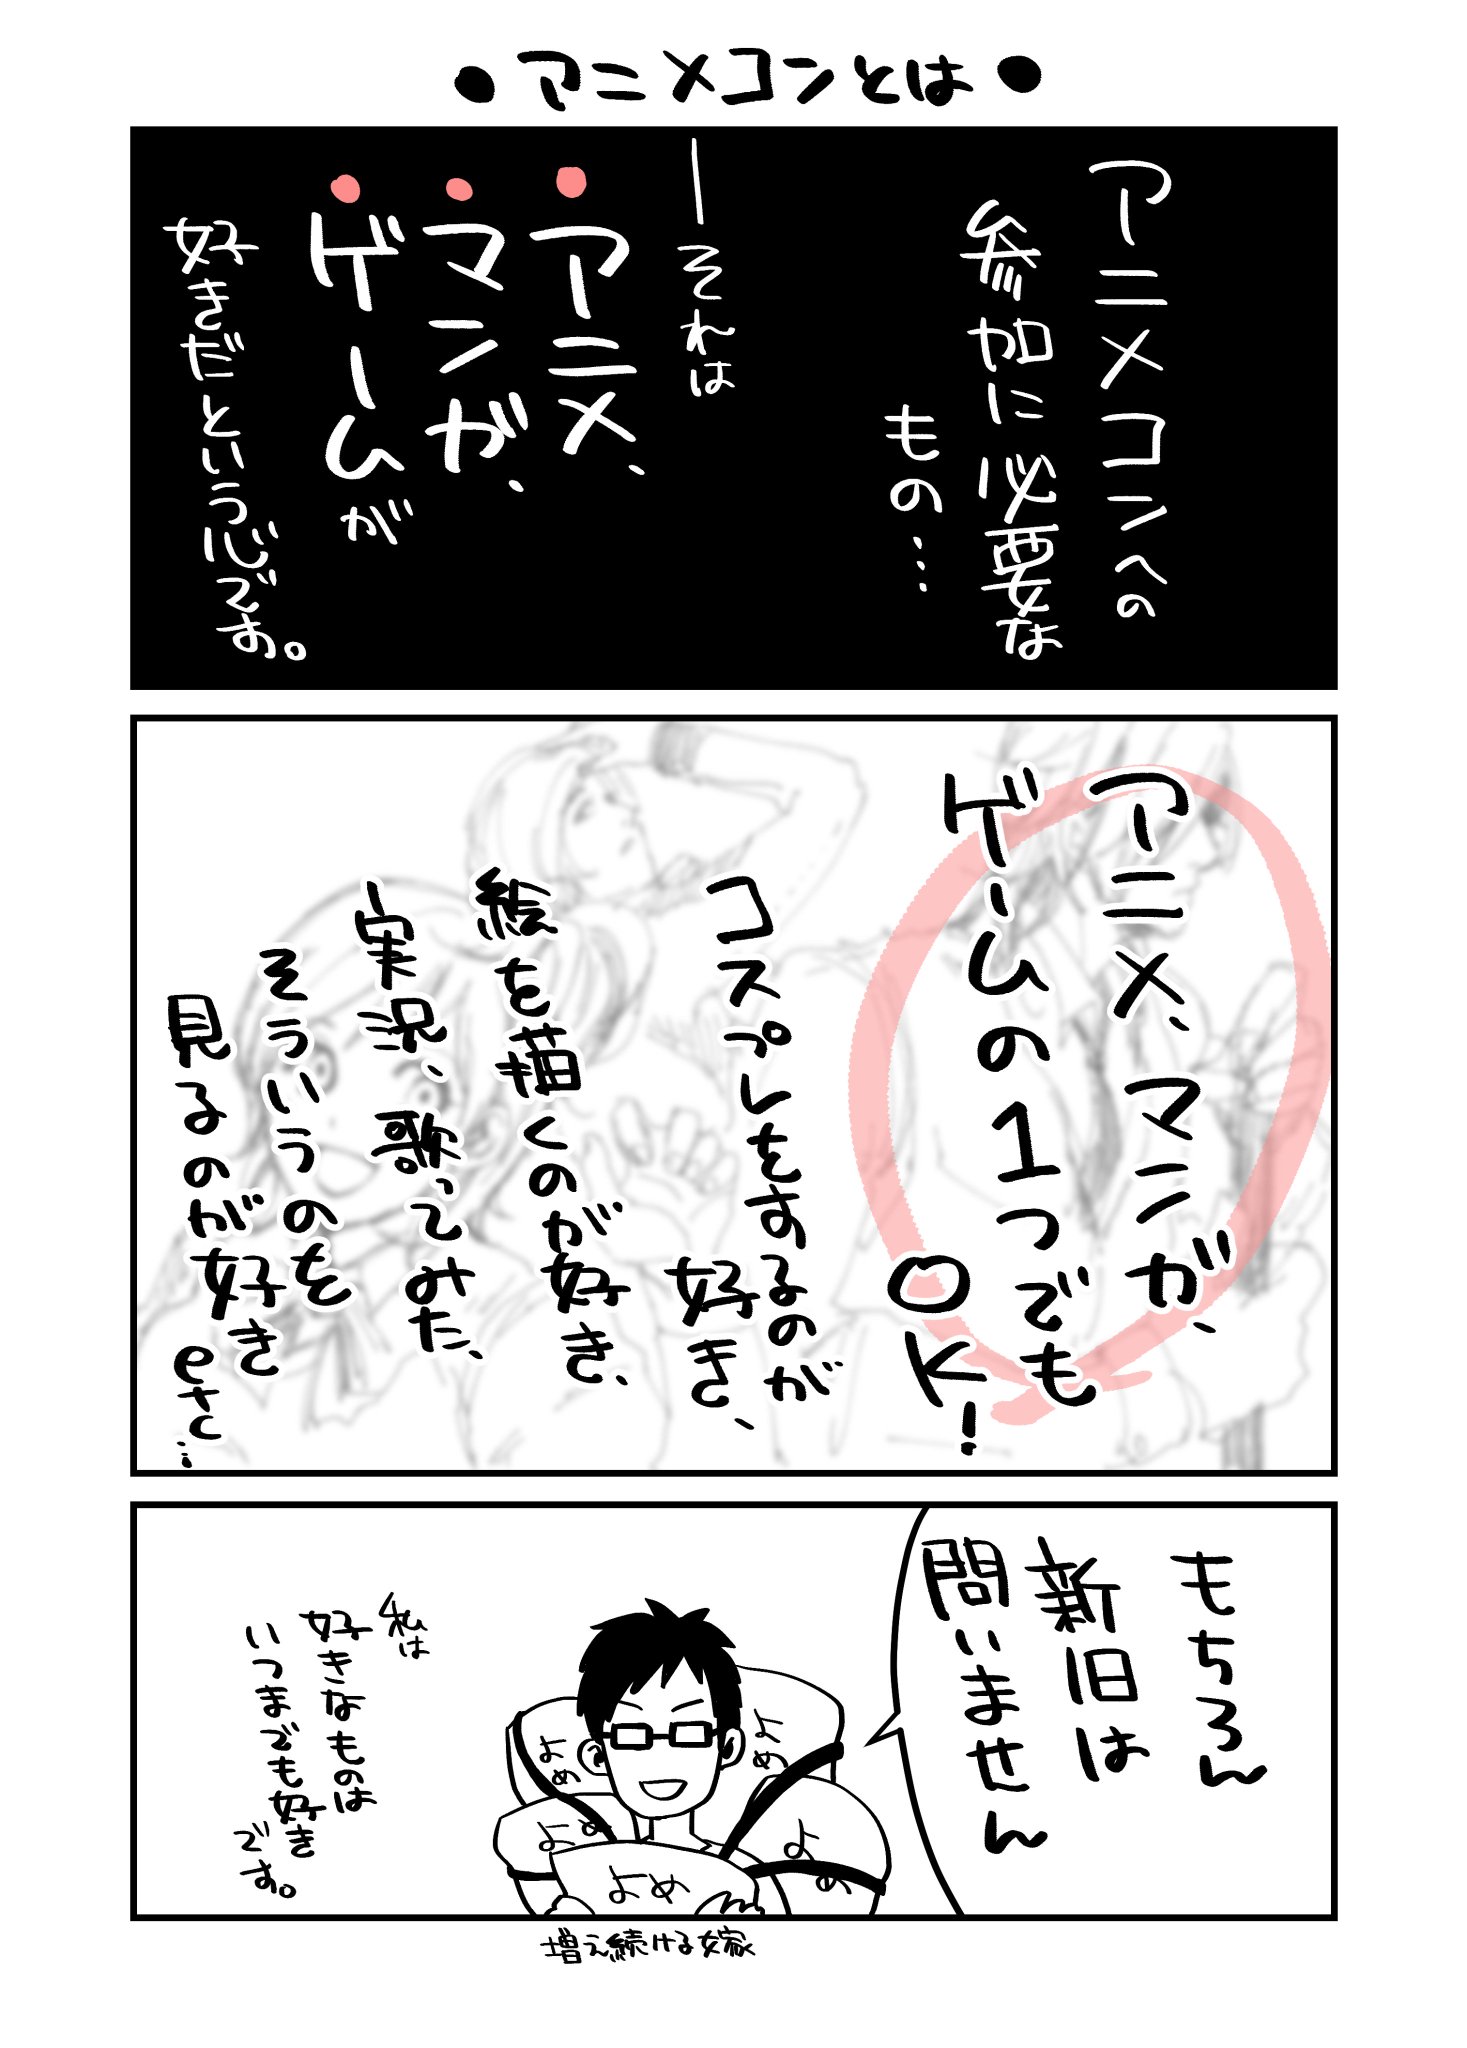 •アニメコンとは•
アニメコンへの
参加に必要な
もの…
―それは
アニメ、
マンガ、
ゲームが
好きだという心です。
アニメ、マンガ、
ゲームの1つでも
OK!
コスプレをするのが
好き、
絵を描くのが好き、
実況、歌ってみた、
そういうのを
見るのが好き
etc…
もちろん
新旧は
問いません
よめ
よめ
よめ
よめ
よめ
私は
好きなものは
いつまでも好き
です。
増え続ける嫁